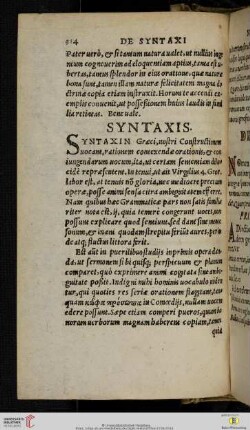 214 DE SYNTAXI
Pater verò, & si tantum natura valet, ut nullius in
num cognoverim ad eloquentiam aptius, tanta est u
bertas, tantus splendor in eius oratione, quæ naturæ
bona sunt, tamen illam naturæ felicitatem magna do
ctrinæ copia etiam instruxit. Horum te accendi ex=
emplis convenit, ut possessionem huius laudis in fami
lia retineat. Bene vale.
SYNTAXIS.
SYNTAXIN Græci, nostri Constructionem
vocant, rationem connectendæ orationis, & con
iungendarum vocum, ita, ut certam sententiam diluci
dè repræsentent. In tenui, ut ait Virgilius 4. Geor.
labor est, at tenuis nō gloria, nec mediocre precium
operæ, posse animi sensa citra ambiguitatem efferre.
Nam quibus hæc Grammaticæ pars non satis familia
riter nota est, ij, quia temerè congerunt voces, non
possunt explicare quod sentiunt, sed dant sine mente
sonum, & ex inani quodam strepitu feriūt aures, perin
de atq; fluctus littora ferit.
Est aūt in puerilibus studijs inprimis operā dan=
da, ut sermonem si bi quisq; perspicuum & planum
comparet, quò exprimere animi cogitata sine ambi=
guitate possit. Indigni nihi hominis vocabulo viden
tur, qui quoties res seriæ orationem flagitant, tan=
quam κωφὰ πρόσωπα in Comœdijs, nullam vocem
edere possunt. Sæpe etiam comperi pueros, quum bo
norum verborum magnam haberent copiam, tamen
quia